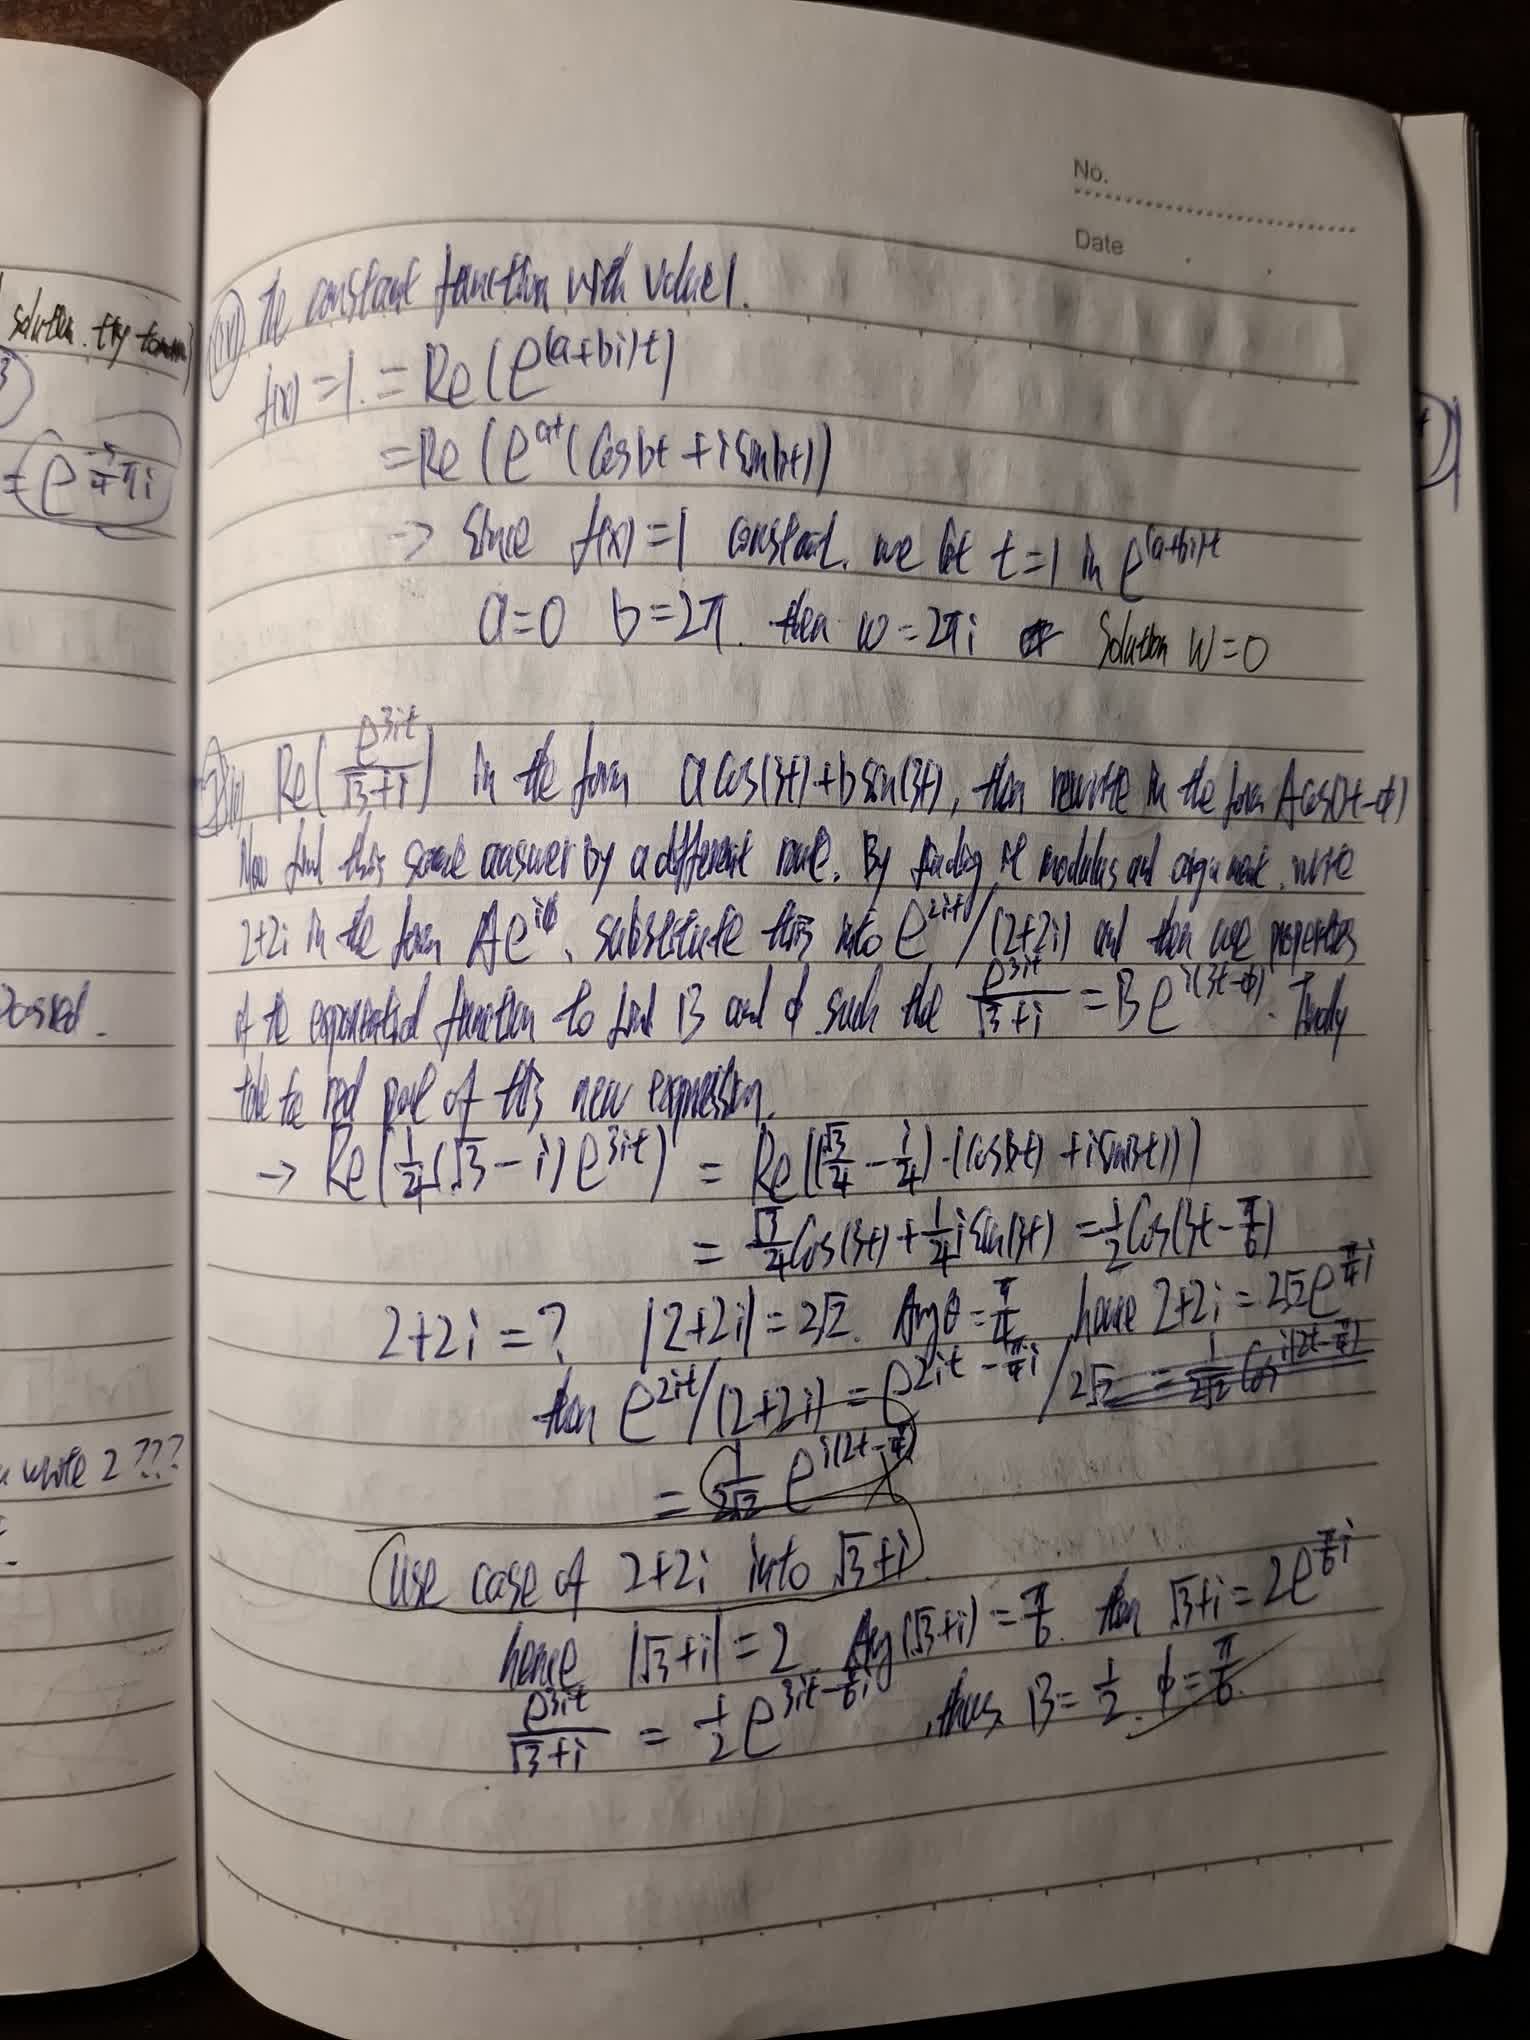 No.
Date
solution. try
= e^{-\frac{3}{4}πi}
write 2 ???
(iv) the constant function with value 1.
f(x) = 1. = Re(e^{(a+bi)t})
= Re(e^{at}(cos bt + i sin bt))
→ Since f(x) = 1 constant. we let t=1 in e^{(a+bi)t}
a=0 b=2π. then w=2πi Solution w=0
Re(\frac{e^{3it}}{√3+i}) in the form a cos(3t)+b sin(3t), then rewrite in the form A cos(3t-φ)
Now find this same answer by a different route. By finding it modulus and argument. write
2+2i in the form Ae^{iφ}, substitute this into e^{2it}/(2+2i) and then use properties
of the exponential function to find B and φ such the \frac{e^{3it}}{√3+i} = Be^{i(3t-φ)}. Finally
take the real part of this new expression.
→ Re(\frac{1}{4}(√3-i)e^{3it}) = Re((\frac{√3}{4}-\frac{i}{4})·(cos(3t)+i sin(3t)))
= \frac{√3}{4}cos(3t)+\frac{1}{4}i sin(3t) = \frac{1}{2}cos(3t-\frac{π}{6})
2+2i = ? |2+2i| = 2√2. Arg θ = \frac{π}{4} hence 2+2i = 2√2e^{\frac{π}{4}i}
then e^{2it}/(2+2i) = e^{2it-\frac{π}{4}i}/2√2 = \frac{1}{2√2} cos^{i(2t-\frac{π}{4})}
= \frac{1}{2√2} e^{i(2t-\frac{π}{4})}
Use case of 2+2i into √3+i.
hence |√3+i| = 2 Arg(√3+i) = \frac{π}{6}. then √3+i = 2e^{\frac{π}{6}i}
\frac{e^{3it}}{√3+i} = \frac{1}{2}e^{3it-\frac{π}{6}i}, thus B=\frac{1}{2}. φ=\frac{π}{6}